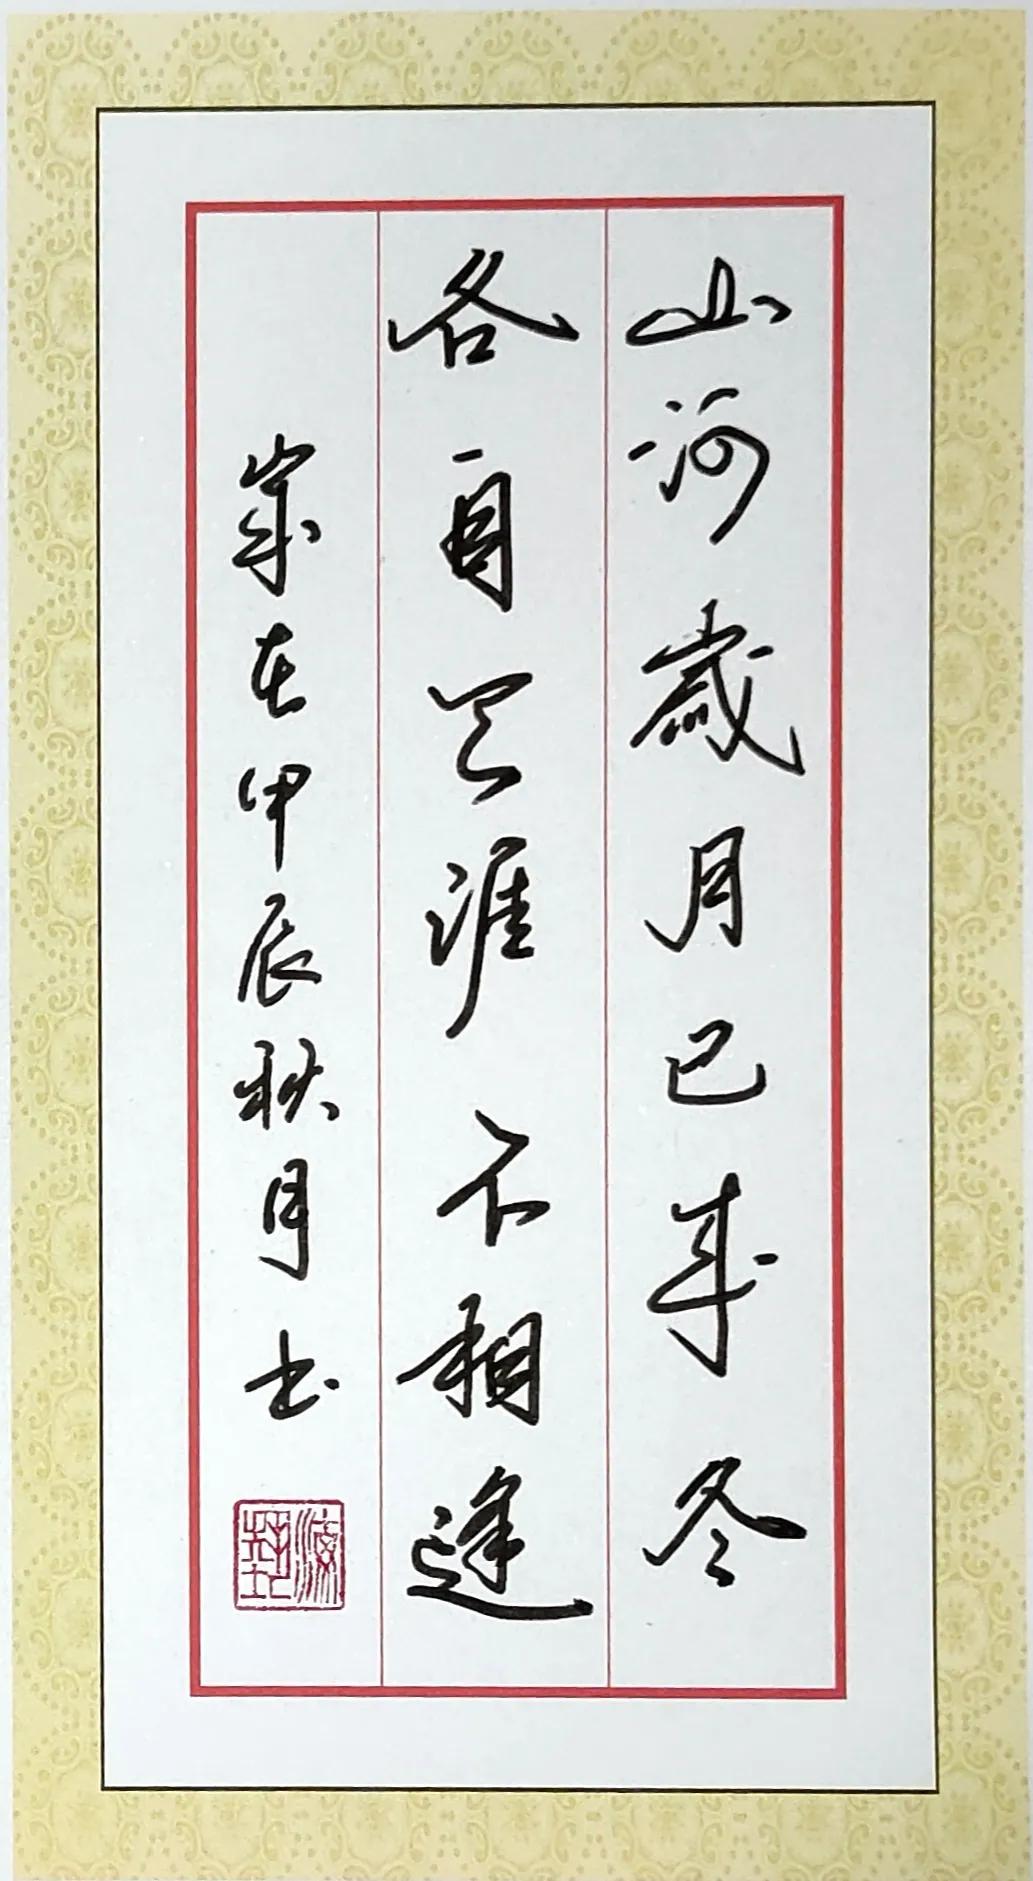 山河歲月已成冬
各自天涯不相逢
歲在甲辰秋月书